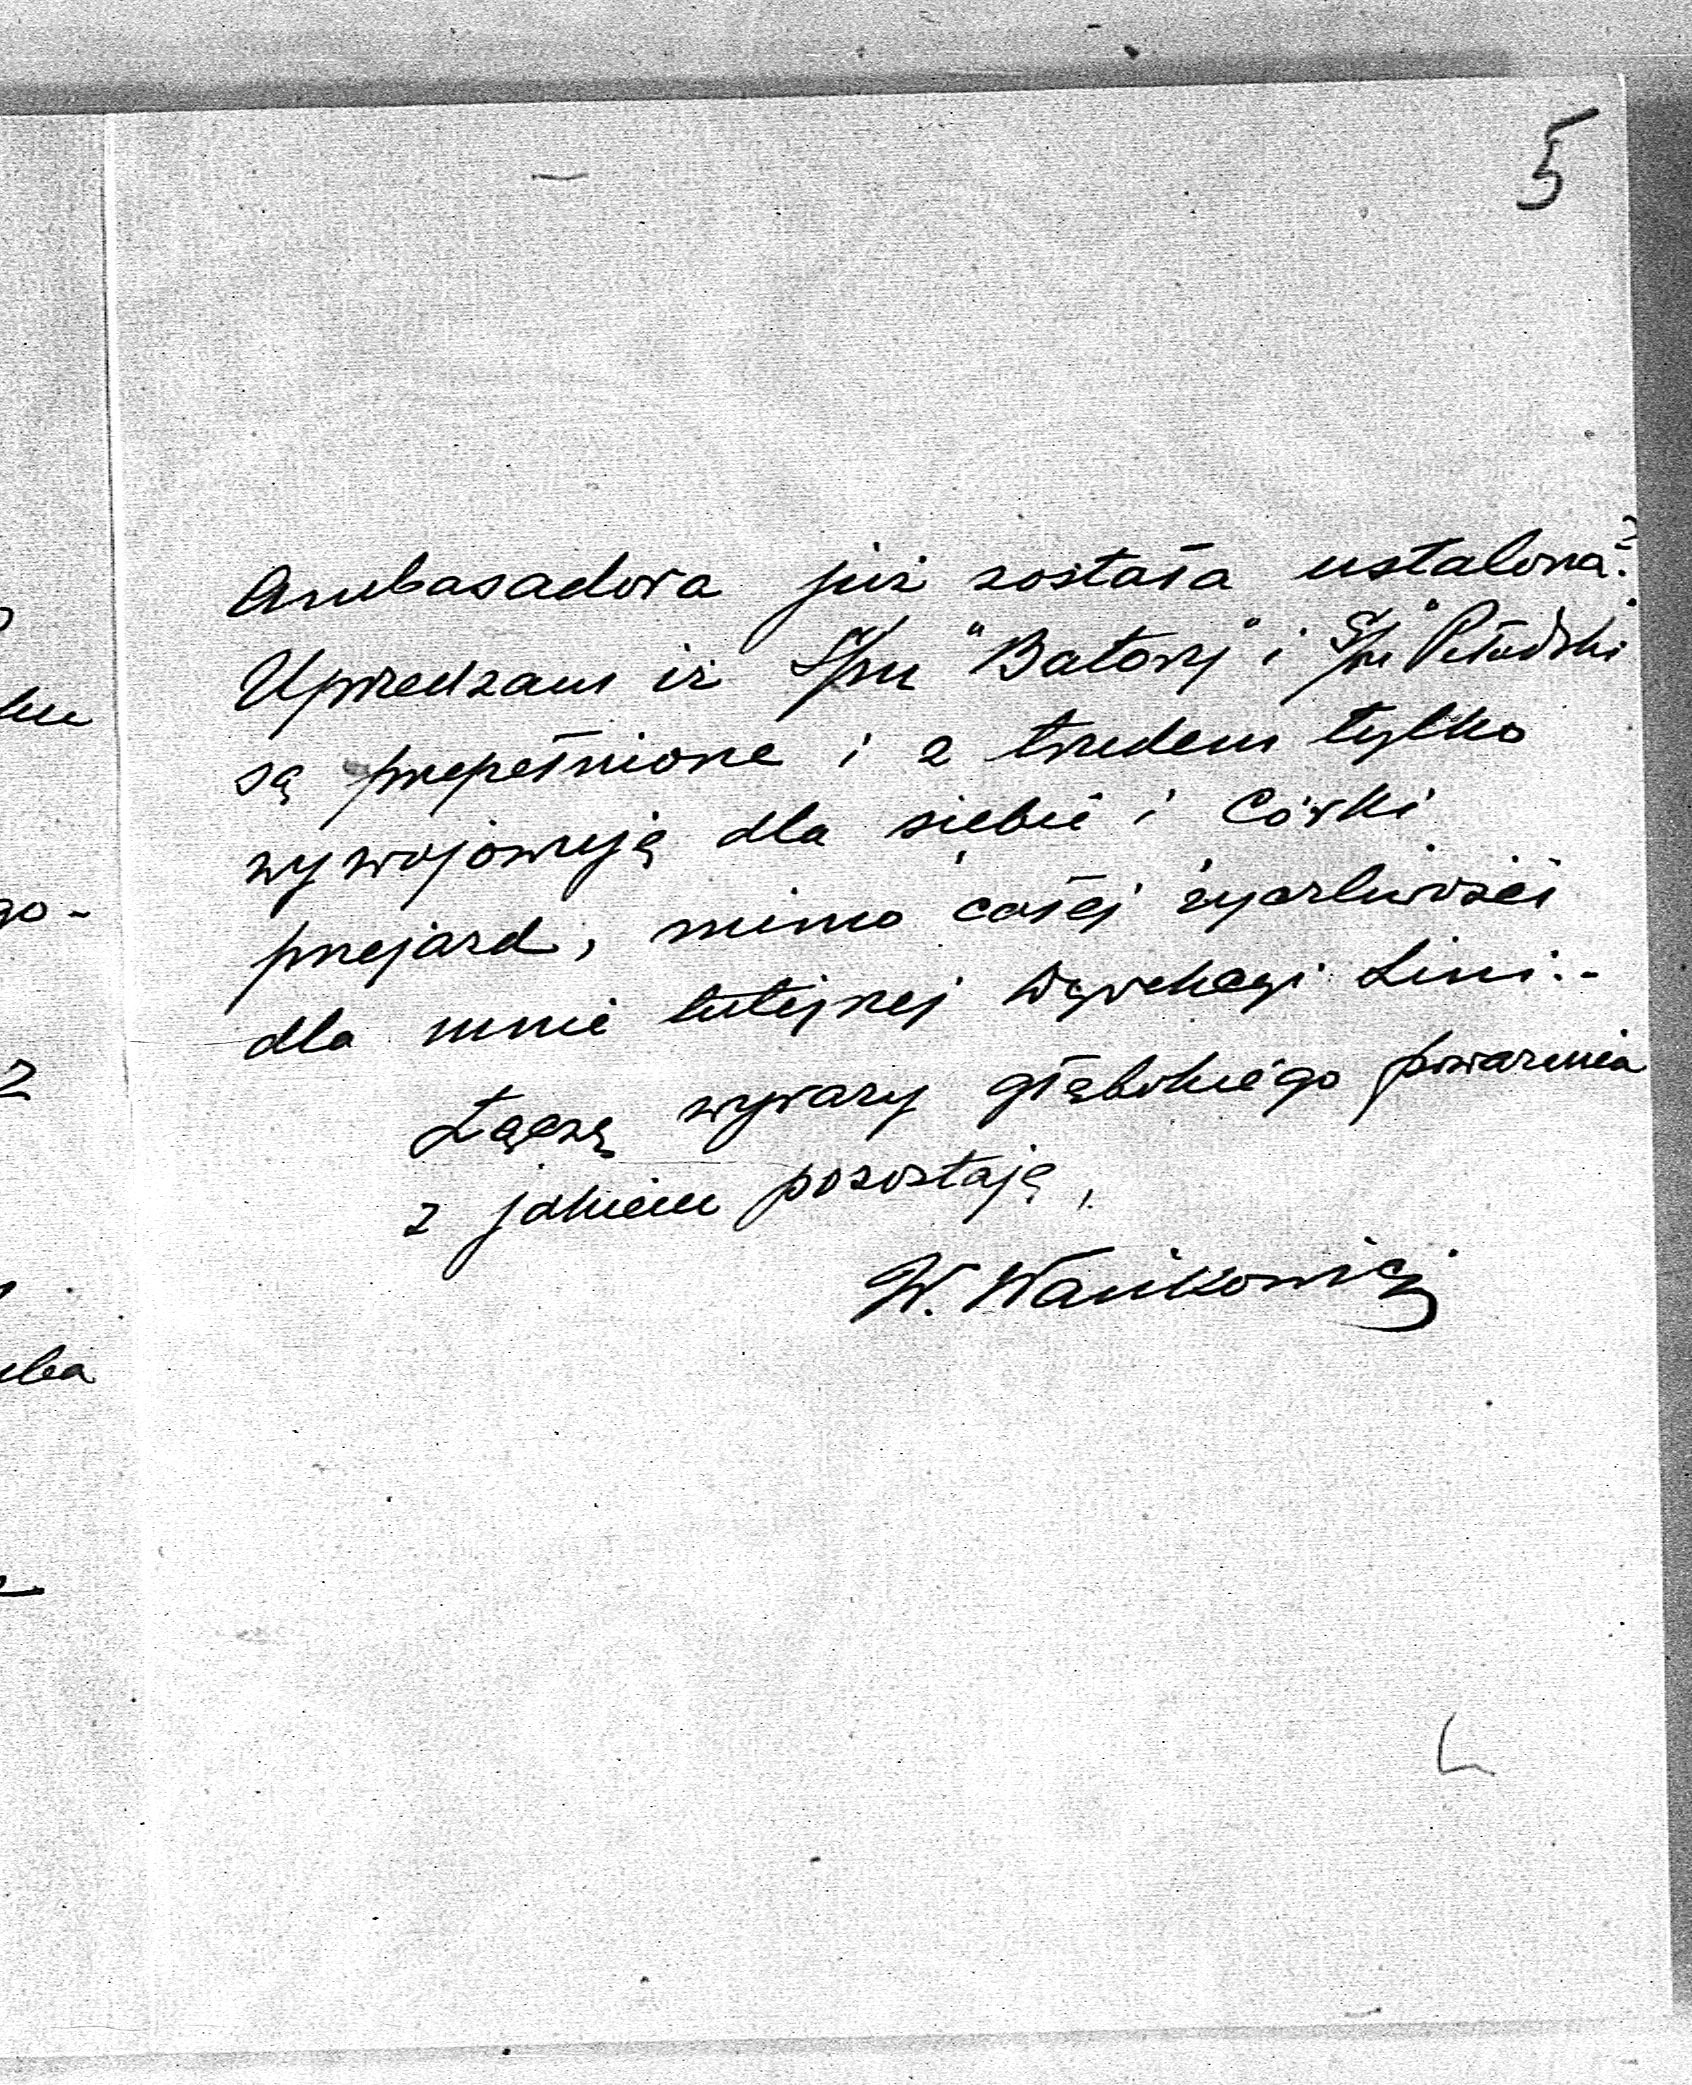 5
Ambasadora już została ustalona?
Uprzedzam iż S/m "Batory" i S/m "Piłsudski"
są przepełnione i z trudem tylko
wywojowuję dla siebie i Córki
przejazd, mimo całej życzliwości
dla mnie tutejszej Dyrekcyi Linii.-
Łączę wyrazy głębokiego poważania
z jakiem pozostaję,
W. Wańkowicz